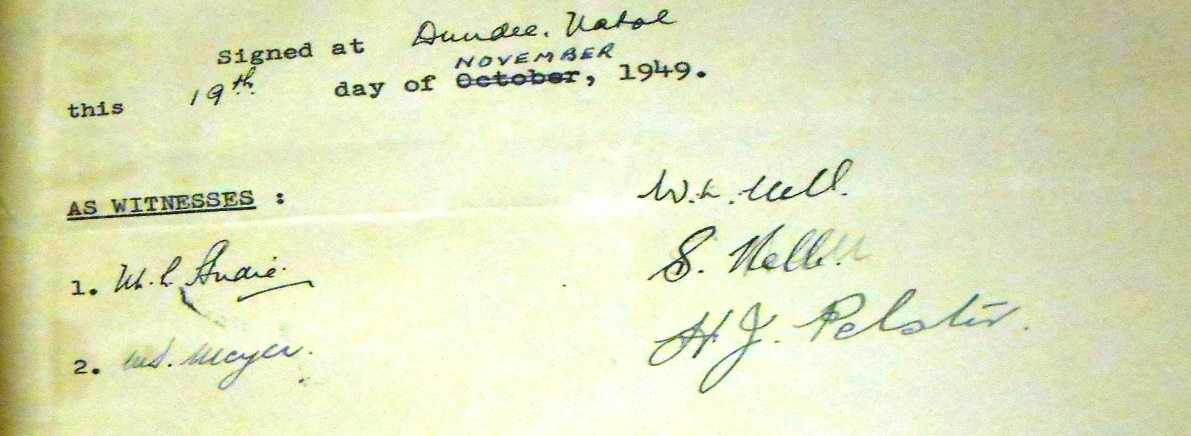 Signed at Dundee, Natal
NOVEMBER
this 19th day of October, 1949.
AS WITNESSES :
W.L.
S.
1.
H.J. Pelster.
2. Meyer.